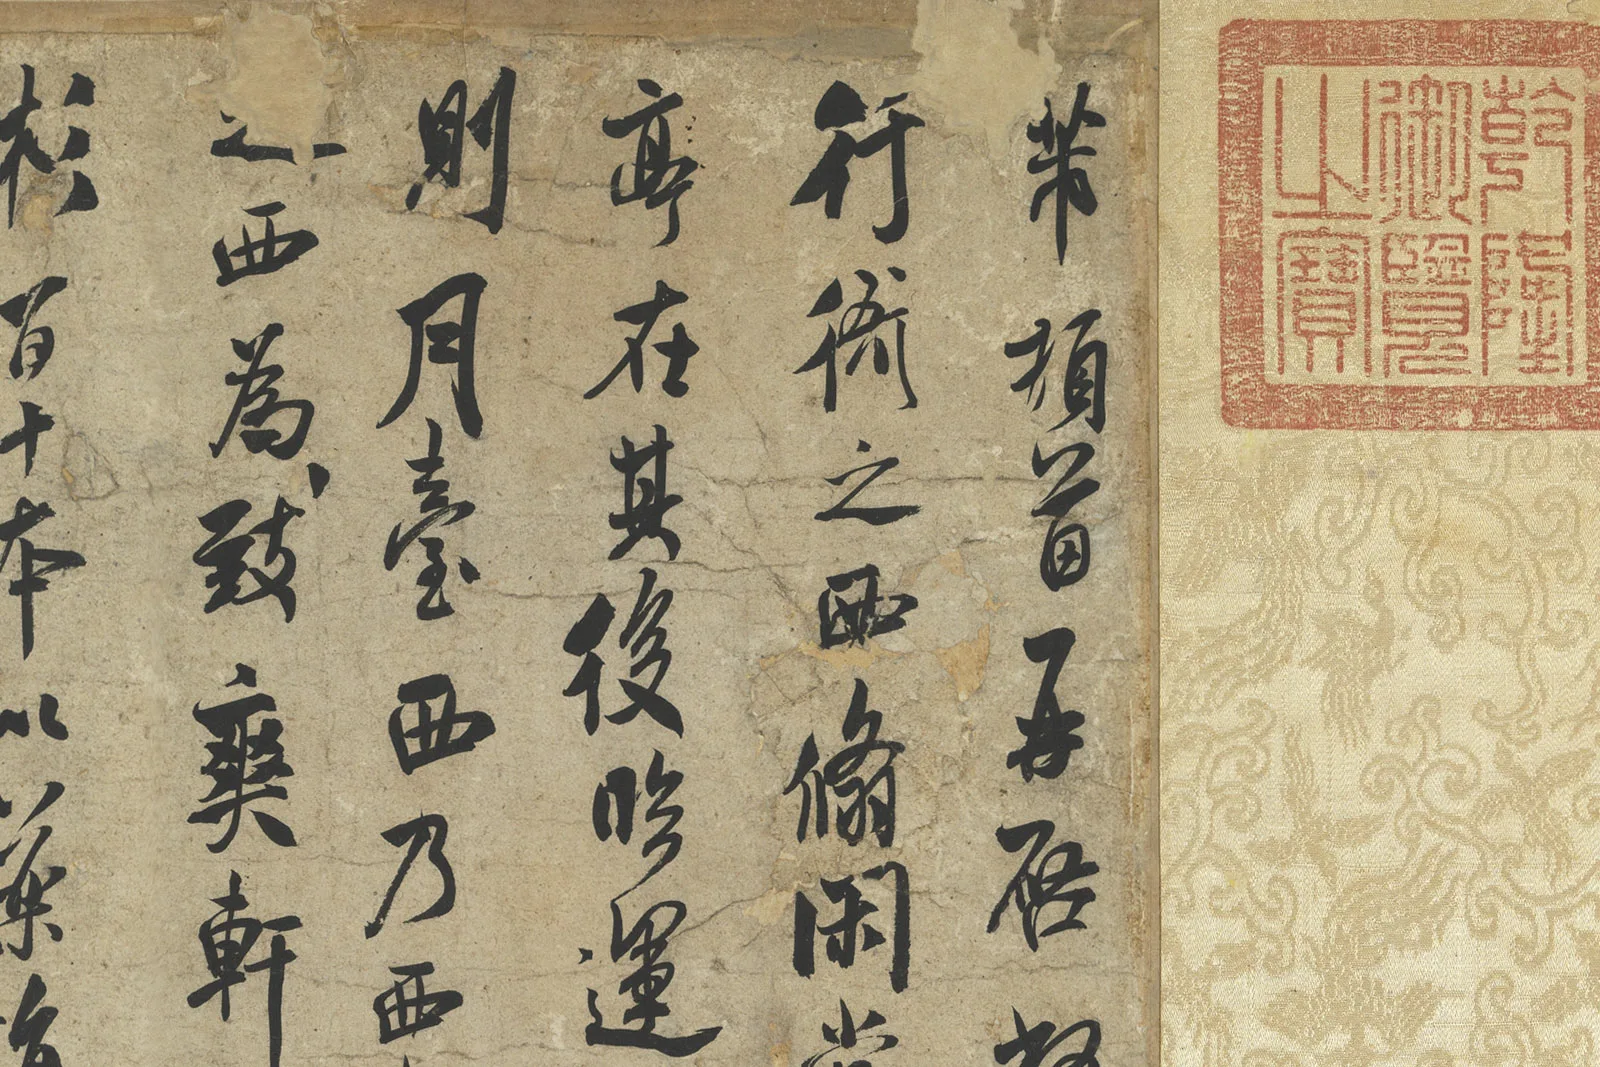 乾隆
御覽
之寶
芾頓首再啓
行衙之西翛閑堂
亭在其後臨運
則月臺西乃西
之西為致爽軒
杉百十本以藥